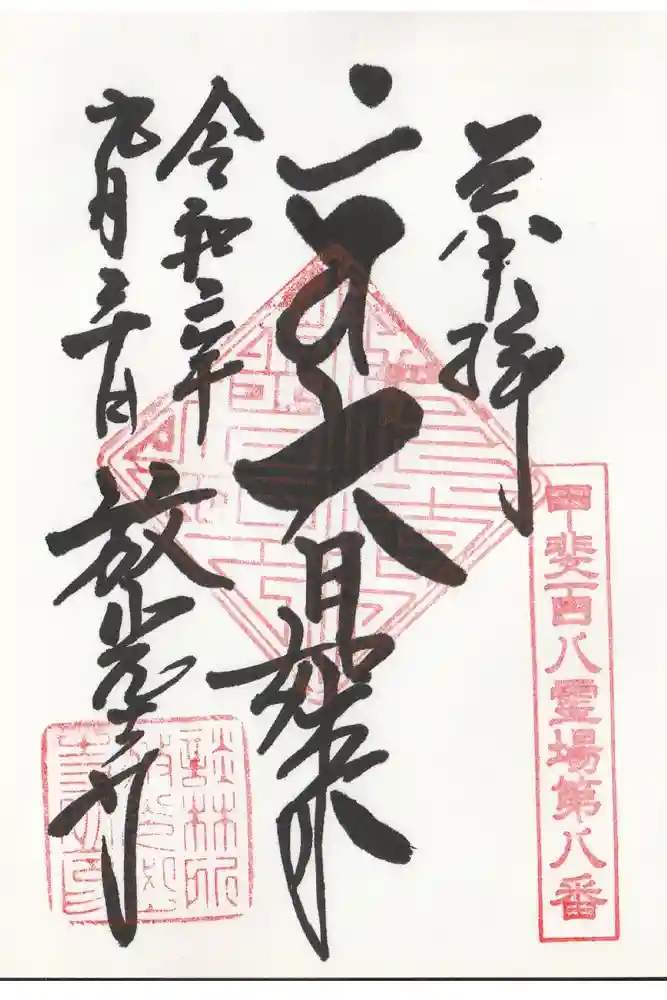 奉拝
甲斐百八霊場第八番
大日如来
令和二年
九月三十日
放光寺
談林所